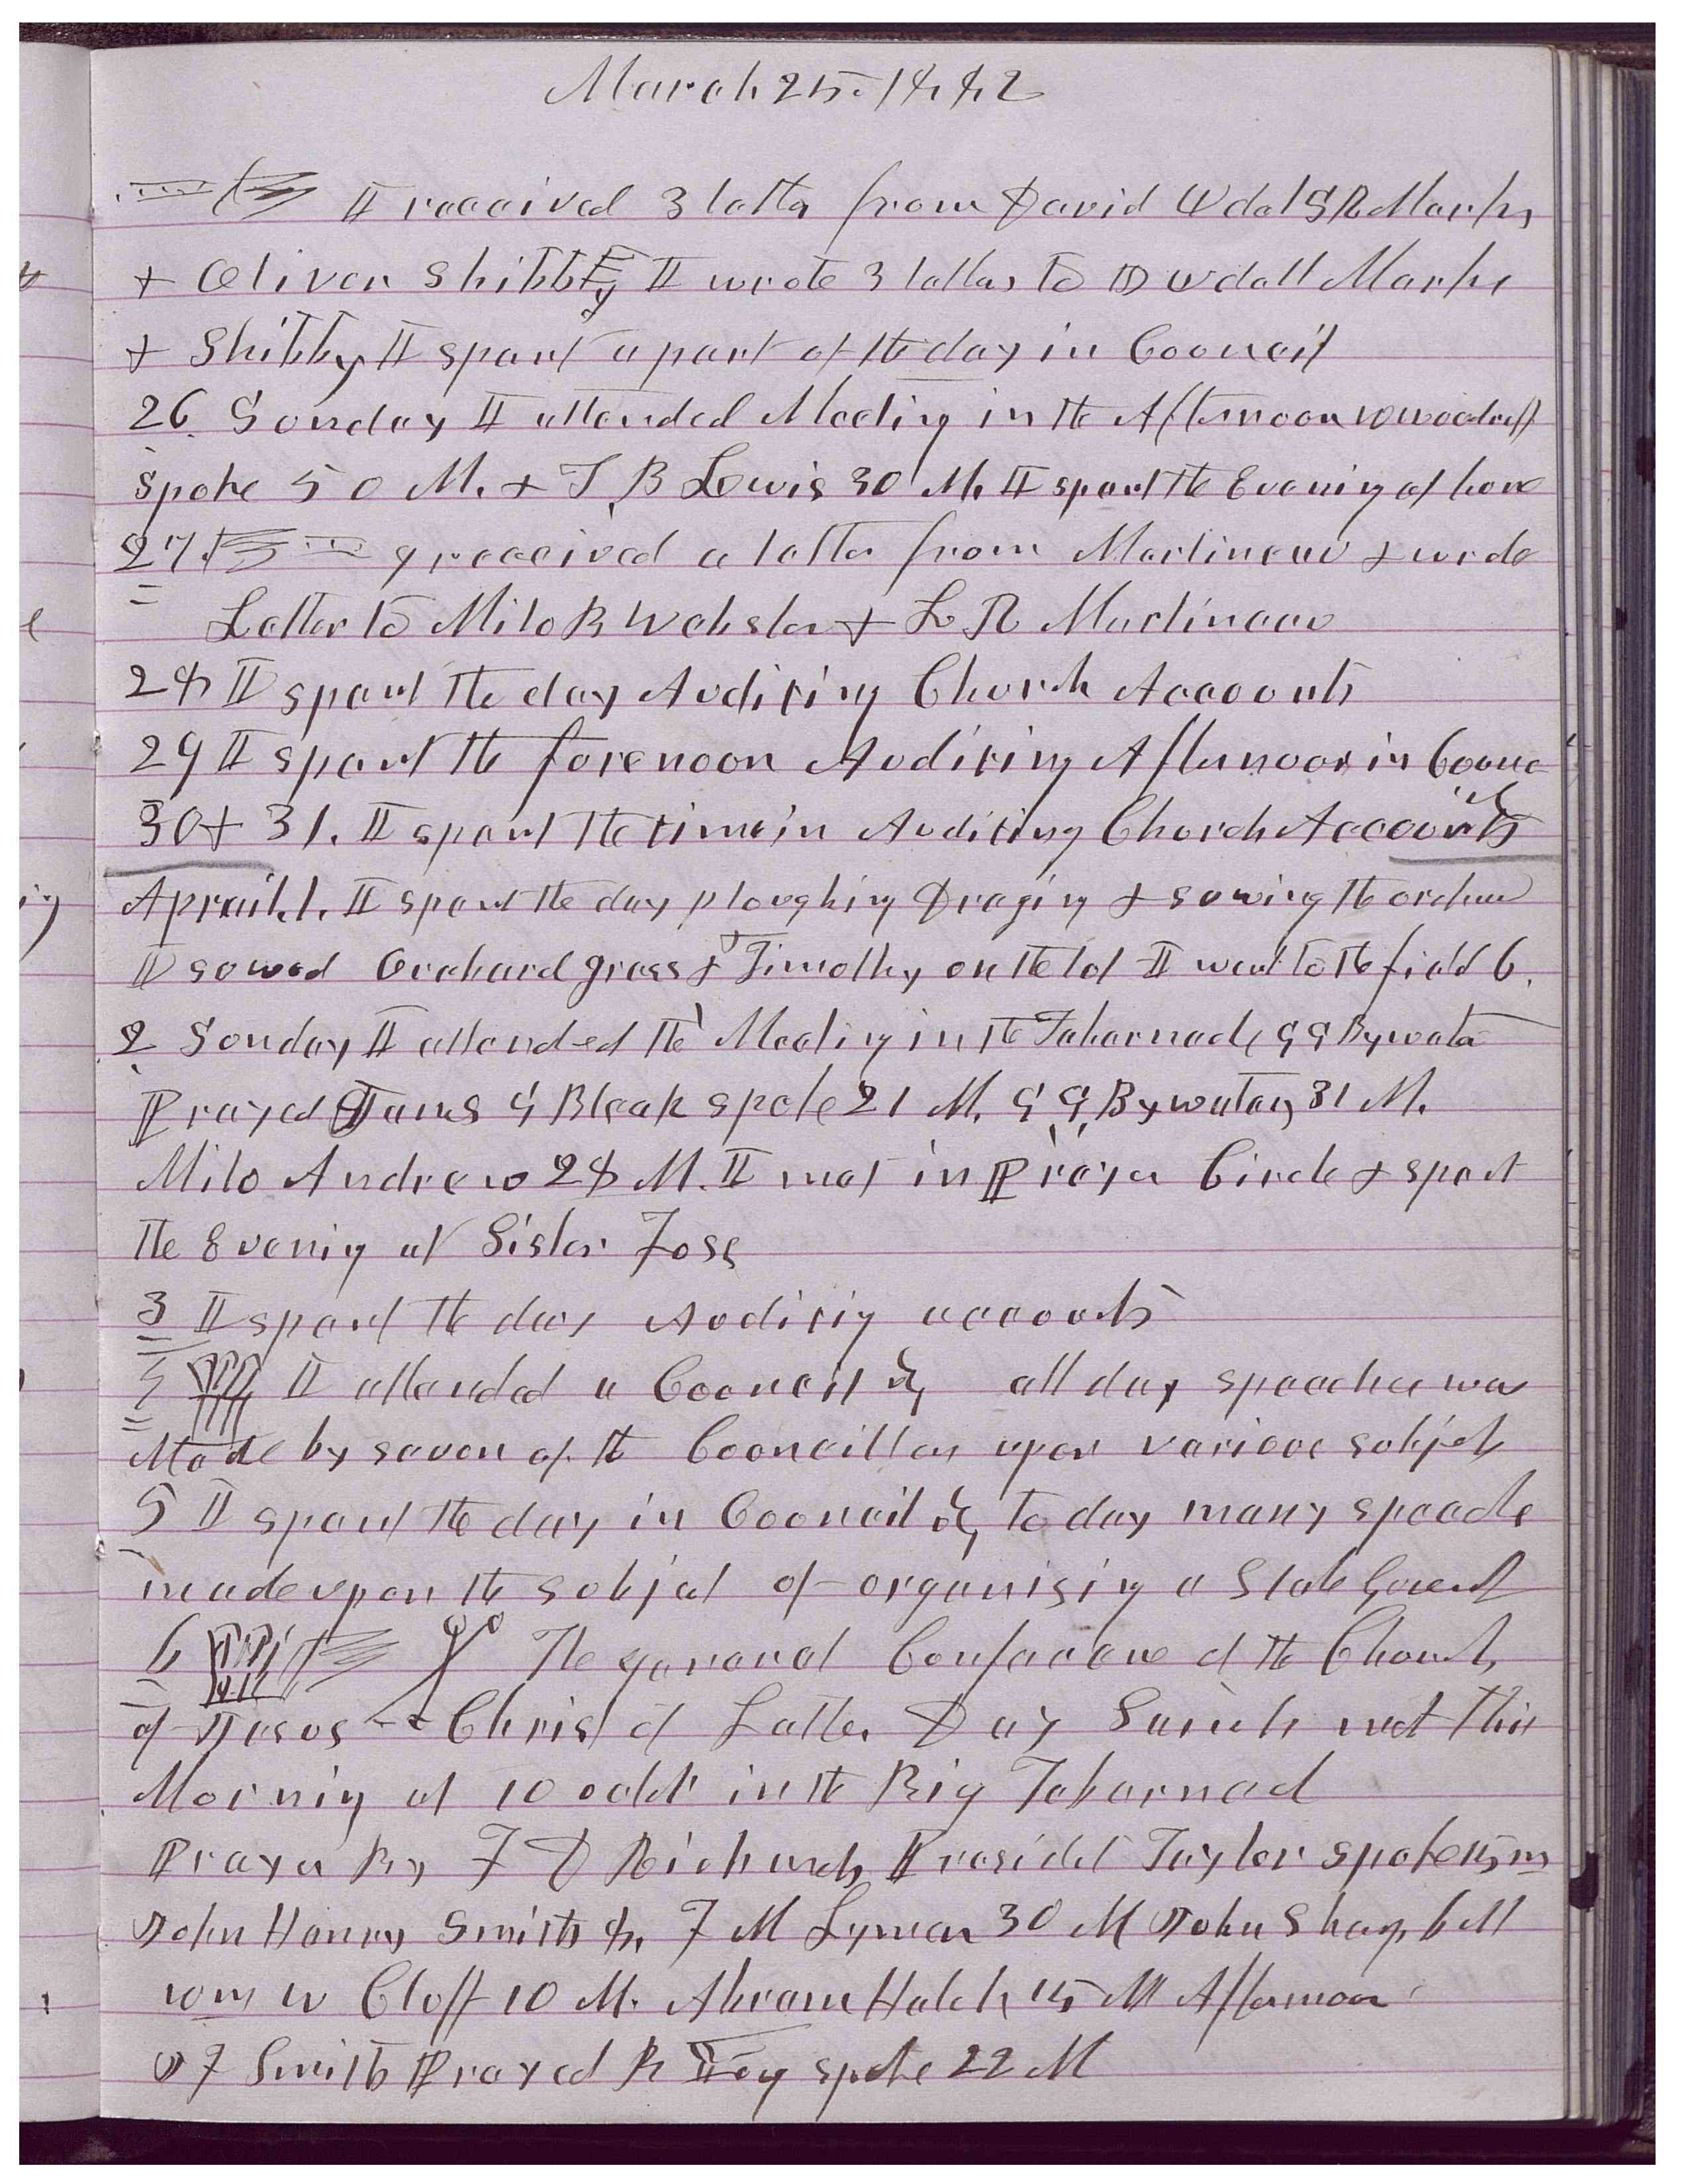 March 25. 1882
I received 3 letters from David Udal S R Marks
+ Oliver Stribbly I wrote 3 letters to D Udall Marks
+ Stribbly I spent a part of the day in Council
26 Sunday I attended Meeting in the Afternoon W Woodruff
spoke 50 M. + T B Lewis 30 M. I spent the Evening at home
27. I received a letter from Martineau + wrote
Letter to Milo B Webster + L R Martineau
28 I spent the day Auditing Church Accounts
29 I spent the forenoon Auditing Afternoon in Counc
il
30 + 31. I spent the time in Auditing Church Accounts
Aprail. 1. I spent the day ploughing Draging + sowing the
I sowed Orchard grass + Timothy on the lot I went to the field 6.
2 Sunday I attended the Meeting in the Tabernacle G G Bywater
Prayed James G Bleak spoke 21 M. G G Bywater 31 M.
Milo Andrew 28 M. I met in Prayer Circle + spent
the Evening at Sister Foss
3 I spent the day Auditing accounts
4 I attended a Council all day speeches was
Made by seven of the Councillors upon various subjets
5 I spent the day in Council to day many speeches
made upon the subject of organizing a State Govermt
6 The general Conference of the Church
of Jesus Christ of Latter Day Saints met this
Morning at 10 oclok in the Big Tabernacl
Prayer By F D Richards, President Taylor spoke 15 m
John Henry Smith 8, F M Lyman 30 M John Sharp 6 M
Wm W Cluff 10 M. Abram Hatch 15 M Afternoon
Smith Prayed B Young spoke 22 M